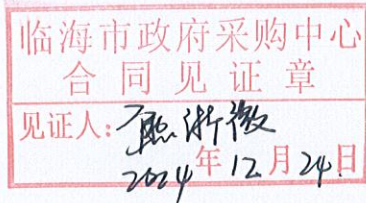 临海市政府采购中心
合同见证章
见证人:
2024年12月24日